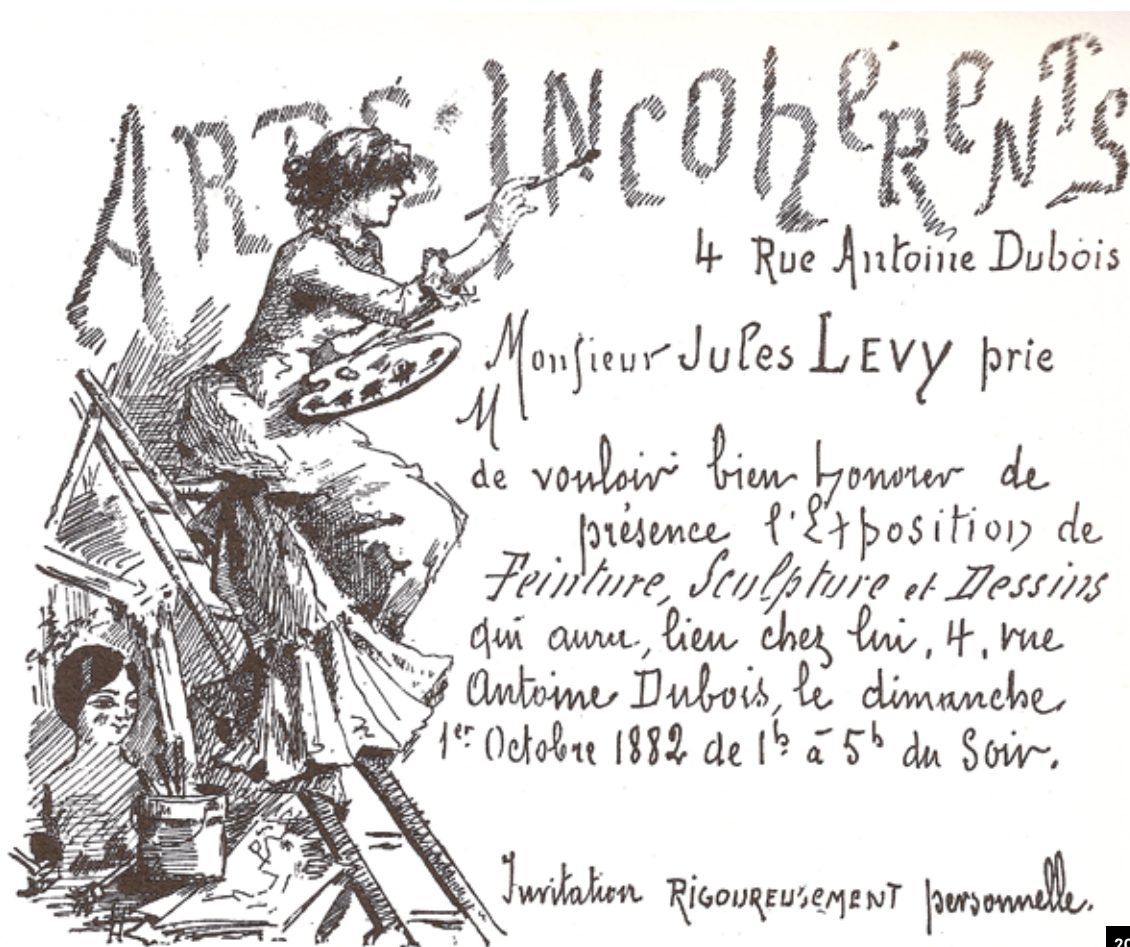 ARTS INCOhéReNTS
4 Rue Antoine Dubois
Monsieur Jules LEVY prie
M
de vouloir bien honorer de
présence l'Exposition de
Peinture, Sculpture et Dessins
qui aura, lieu chez lui, 4, rue
Antoine Dubois, le dimanche
1er Octobre 1882 de 1h à 5h du Soir.
Invitation RIGOUREUSEMENT personnelle.
20